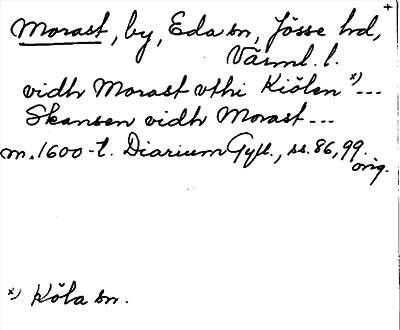 +
Morast, by, Eda sn, Jösse hd,
Värml. l.
vidh Morast vthi Kiölen x)...
Skansen vidh Morast ---
m. 1600-t. Diarium Gyll., ss. 86, 99.
orig.
x) Köla sn.